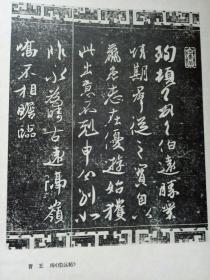 珣頓首頓首伯遠勝業
情期群從之寶自以
羸患志在優遊始獲
此出意不剋申分別如
昨永為疇古遠隔嶺
嶠不相瞻臨
晋 王 珣《伯远帖》